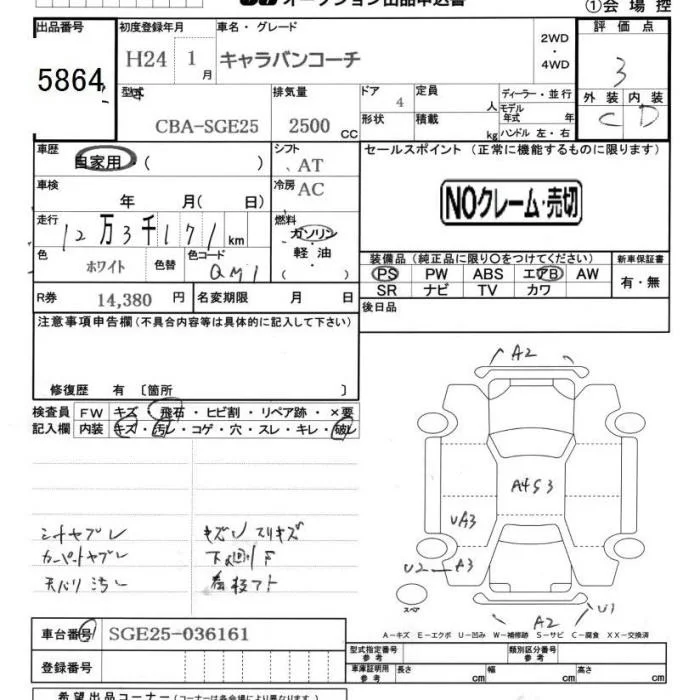 オークション出品申込書
①会場控
出品番号
5864
初度登録年月
H24 1月
車名・グレード
キャラバンコーチ
2WD
・
4WD
評価点
3
外装 内装
C D
型式
CBA-SGE25
排気量
2500 CC
ドア
4
形状
定員
人
積載
kg
ディーラー・並行
モデル
年式 年
ハンドル 左・右
車歴
自家用 ( )
シフト
AT
車検
年 月( 日)
冷房
AC
走行
12万3千171km
燃料
ガソリン
・
軽油
・
( )
色
ホワイト
色替
色コード
QM1
R券
14,380 円
名変期限 月 日
セールスポイント (正常に機能するものに限ります)
NOクレーム・売切
装備品(純正品に限り〇をつけてください)
新車保証書
PS PW ABS エアB AW
SR ナビ TV カワ
有・無
後日品
注意事項申告欄(不具合内容等は具体的に記入して下さい)
修復歴 有 〔箇所 〕
検査員
記入欄
FW キズ・飛石・ヒビ割・リペア跡・×要
内装 キズ・汚レ・コゲ・穴・スレ・キレ・破レ
シートヤブレ
カーペットヤブレ
天バリ汚レ
キズU スリキズ
下廻リ
A2
A4S3
UA3
U2
A3
A2
U1
スペア
A-キズ E-エクボ U-凹み W-補修跡 S-サビ C-腐食 XX-交換済
車台番号
SGE25-036161
登録番号
型式指定番号
参考
類別区分番号
参考
車庫証明用
参考
長さ cm
幅 cm
高さ cm
希望出品コーナー(コーナーは各会場により異なります)